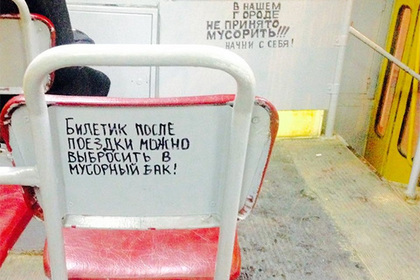 В НАШЕМ
ГОРОДЕ
НЕ ПРИНЯТО
МУСОРИТЬ!!!
НАЧНИ С СЕБЯ!
БИЛЕТИК ПОСЛЕ
ПОЕЗДКИ МОЖНО
ВЫБРОСИТЬ В
МУСОРНЫЙ БАК!